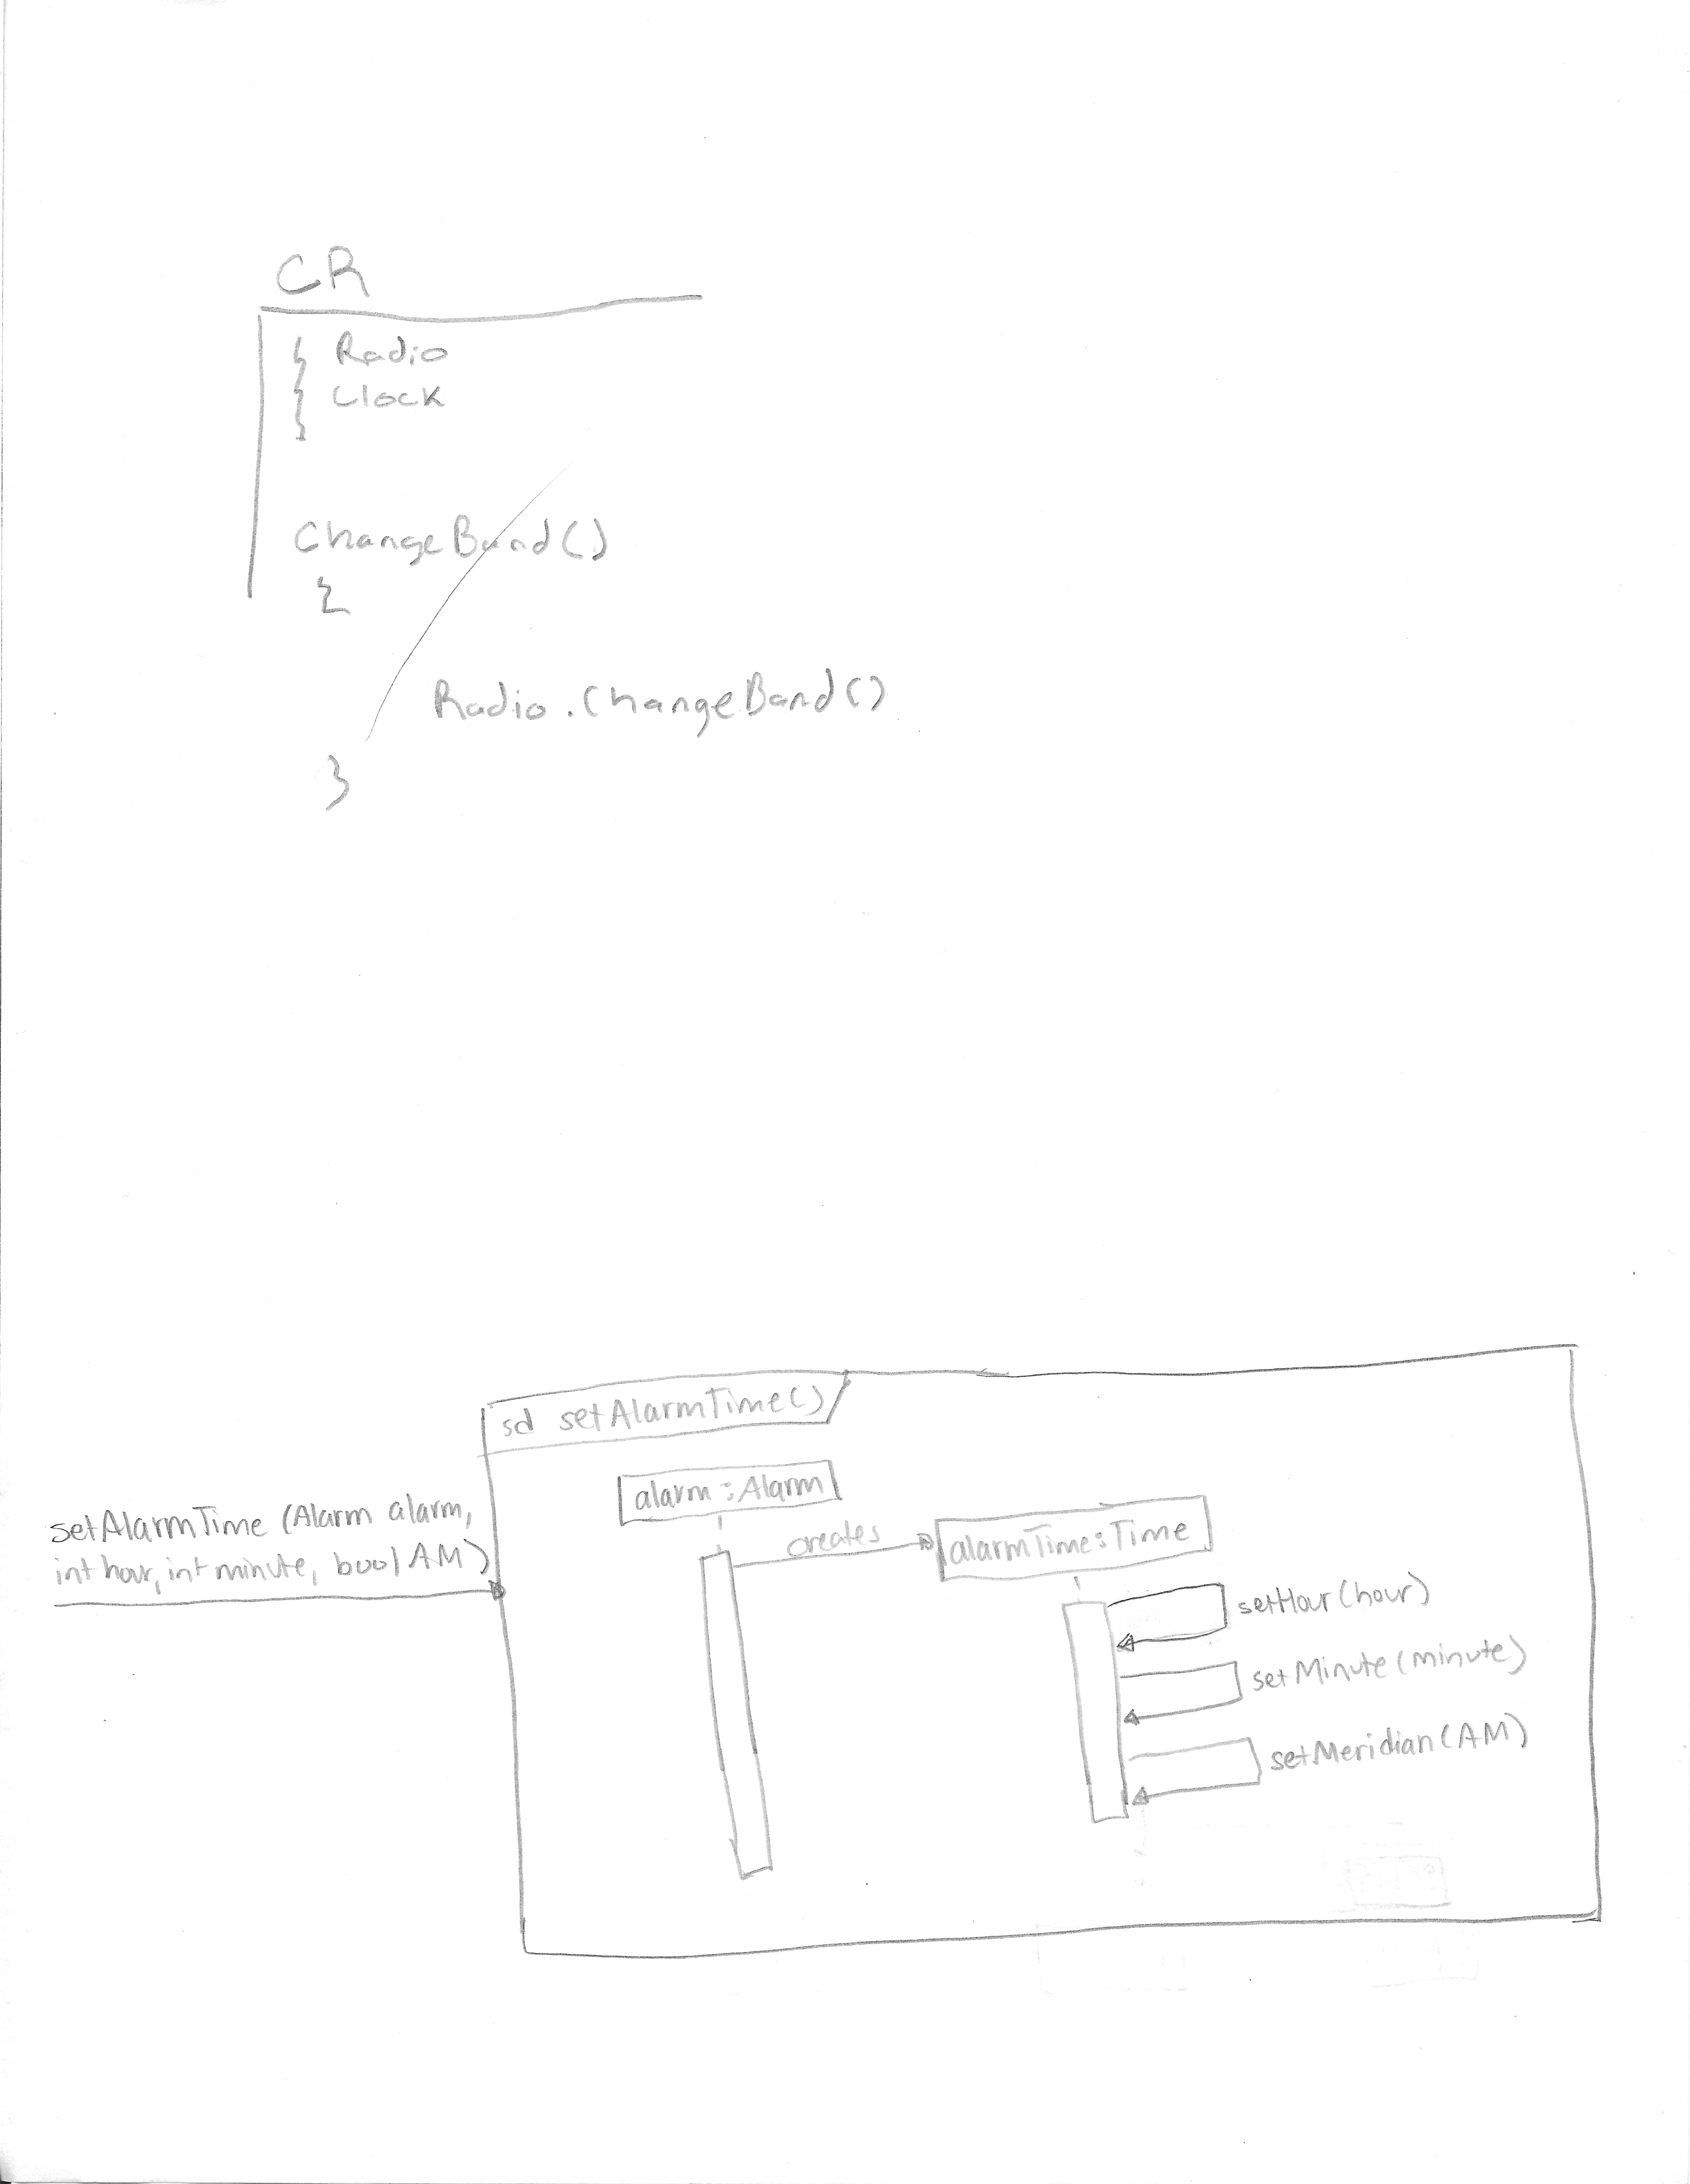 CR
{ Radio
{ Clock
}
ChangeBand()
{
Radio.ChangeBand()
}
sd setAlarmTime()
alarm:Alarm
setAlarmTime (Alarm alarm,
int hour, int minute, bool AM)
creates
alarmTime:Time
setHour(hour)
setMinute(minute)
setMeridian(AM)